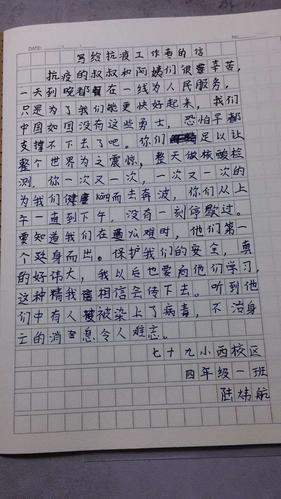 写给抗疫工作者的信
抗疫的叔叔和阿姨们很辛苦，
一天到晚都在一线为人民服务，
只是为了我们能更快好起来，我们
中国如国没有这些勇士，恐怕早都
支撑不下去了吧。你们足以让
整个世界为之震惊，整天做核酸检
测，你一次又一次，一次又一次的
为我们健康而去奔波，你们从上
午一直到下午，没有一刻停歇过。
要知道我们在危难时，他们第一
个挺身而出。保护我们的安全，真
的好伟大，我以后也要向他们学习，
这种精我相信会传下去。听到他
们中有人被染上了病毒，不治身
亡的消息令人难忘。
七十九小西校区
四年级一班
陆炜航